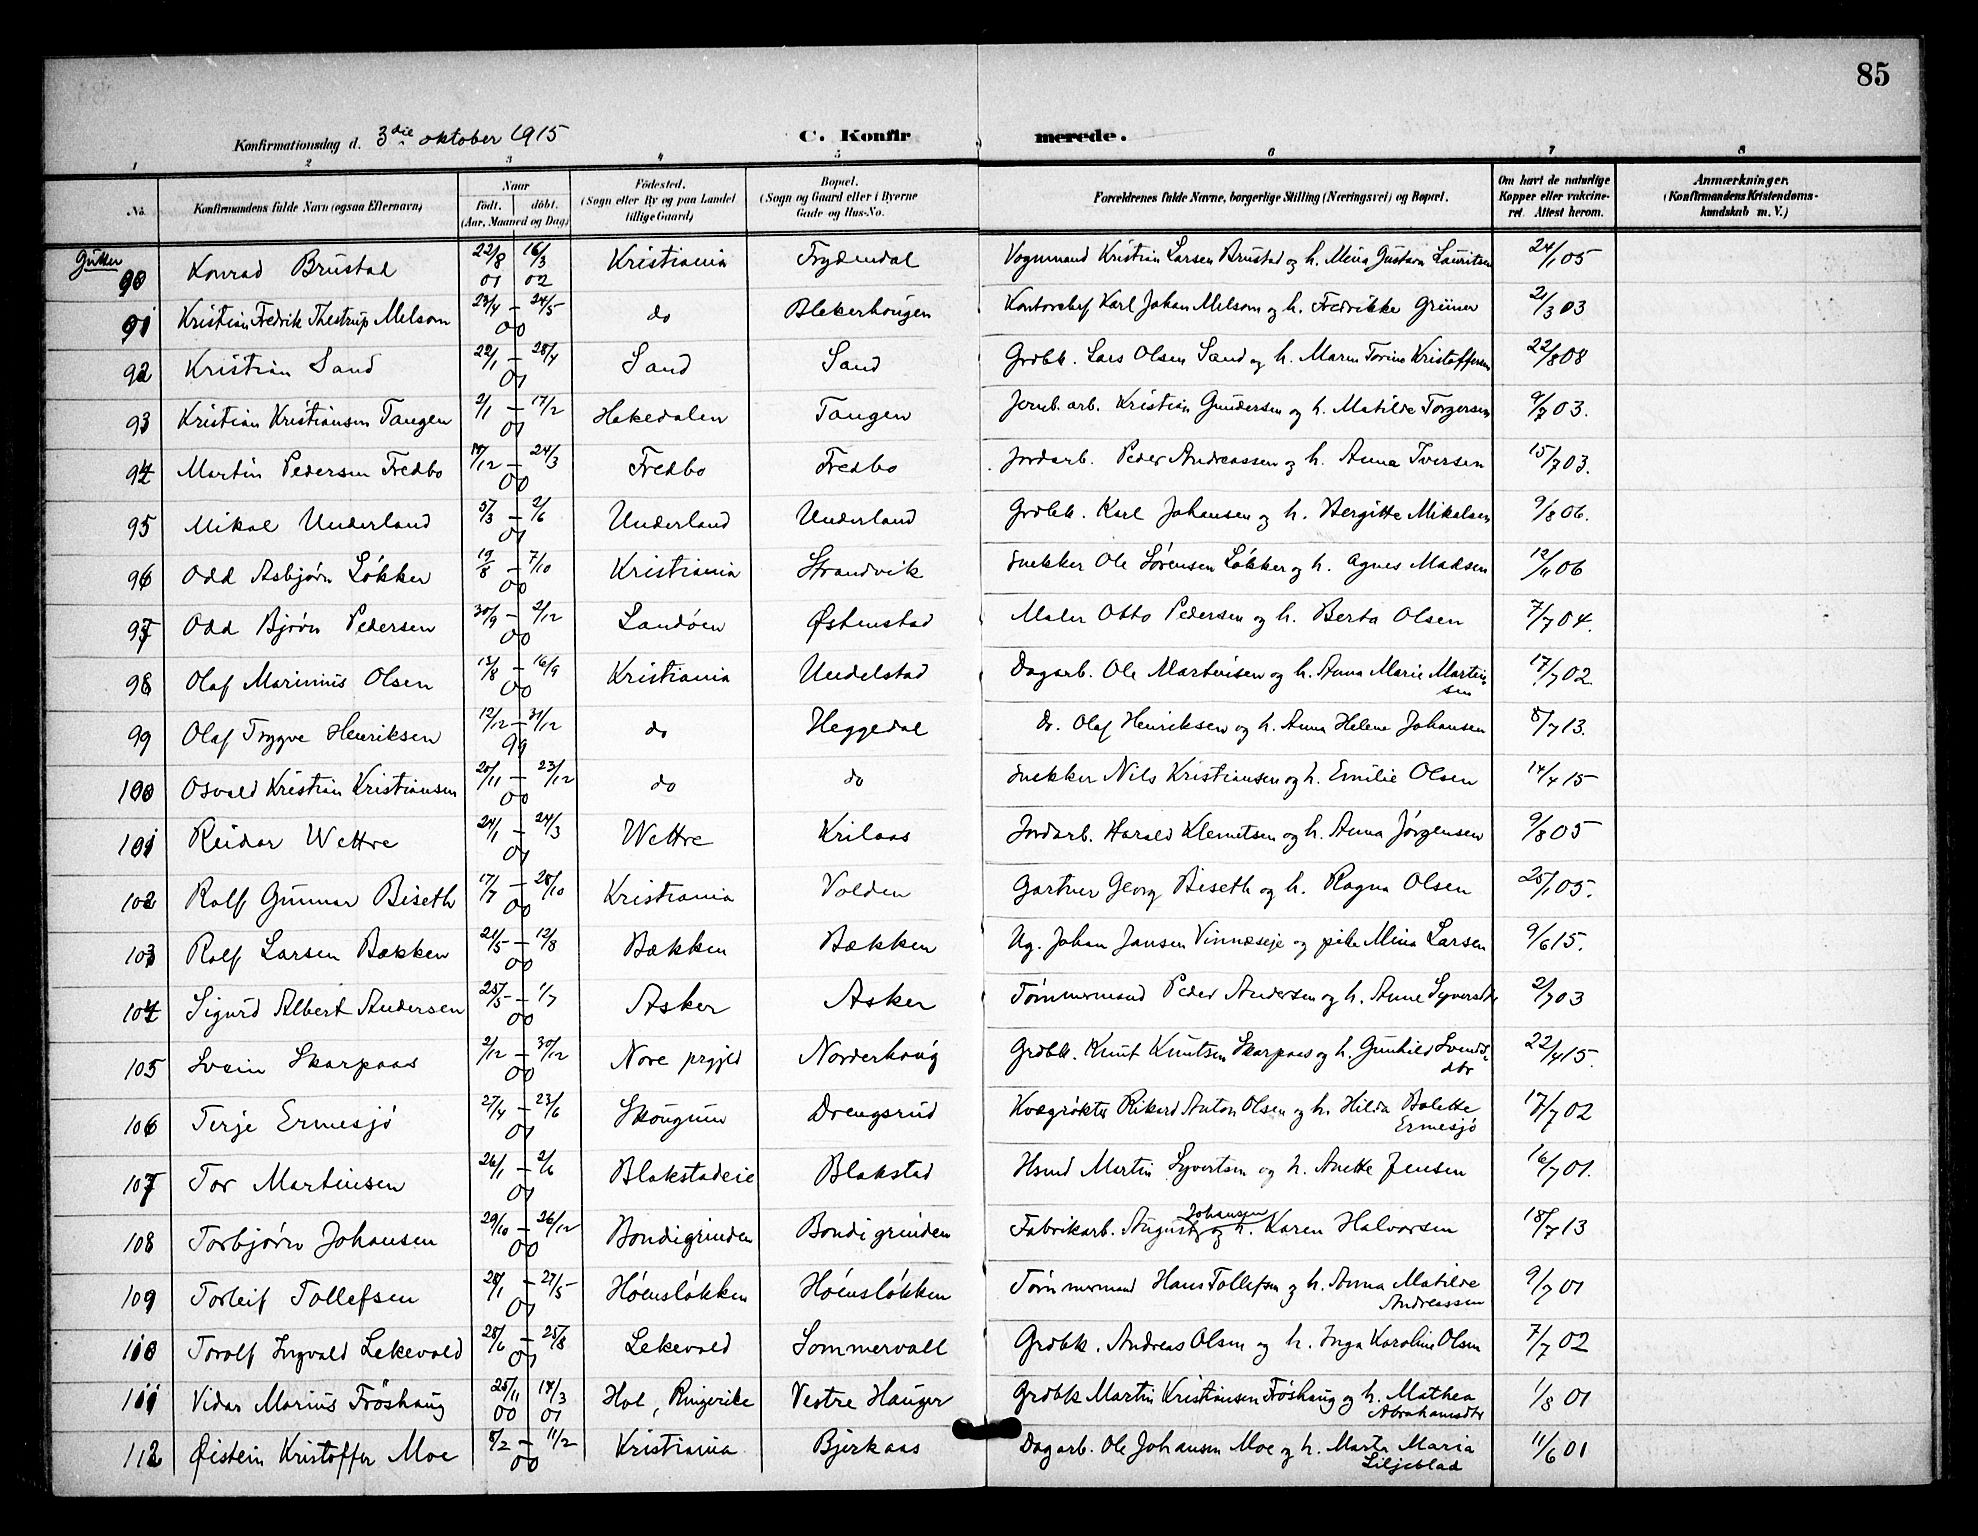 85
Konfirmationsdag d. 3die oktober 1915 C. Konfir merede.
1 2 3 4 5 6 7 8
No. Konfirmandens fulde Navn (ogsaa Efternavn) Naar født. døbt. (Aar, Maaned og Dag) Fødested. (Sogn eller By og paa Landet tillige Gaard) Bopæl. (Sogn og Gaard eller i Byerne Gade og Hus-No. Forældrenes fulde Navne, borgerlige Stilling (Næringsvei) og Bopæl. Om havt de naturlige Kopper eller vakcineret. Attest herom. Anmærkninger. (Konfirmandens Kristendomskundskab m. V.)
Gutter
90 Konrad Brustad 22/8 01 16/3 02 Kristiania Frydendal Vognmand Kristian Larsen Brustad og h. Mina Gustava Lauritsen 24/1 05
91 Kristian Fredrik Thestrup Melsom 23/4 – 24/5 00 do Blekerhaugen Kontorchef Karl Johan Melsom og h. Fredrikke Grüner 2/3 03
92 Kristian Sand 22/1 – 28/4 01 Sand Sand Grdbk. Lars Olsen Sand og h. Maren Torine Kristoffersen 22/8 08
93 Kristian Kristiansen Tangen 2/1 – 17/2 01 Hakedalen Tangen Jernb. arb. Kristian Gundersen og h. Matilde Torgersen 9/7 03.
94 Martin Pedersen Fredbo /12 – 24/3 00 Fredbo Fredbo Jordarb. Peder Andreassen og h. Anna Iversen 15/7 03.
95 Mikal Underland 5/3 – 2/6 01 Underland Underland Grdbk. Karl Johansen og h. Bergitte Mikalsen 9/8 06.
96 Odd Asbjørn Løkker 19/8 – 7/10 00 Kristiania Strandvik Snekker Ole Sørensen Løkker og h. Agnes Madsen 12/11 06
97 Odd Bjørn Pedersen 30/9 – 2/12 00 Landøen Østenstad Maler Otto Pedersen og h. Berta Olsen 7/7 04.
98 Olaf Marinius Olsen 13/8 – 16/9 00 Kristiania Undelstad Dagarb. Ole Martinisen og h. Anna Marie Martinsen 17/7 02.
99 Olaf Trygve Henriksen 12/12 – 31/12 99 do Heggedal do. Olaf Henriksen og h. Anna Helene Johansen 8/7 13.
100 Osvald Kristian Kristiansen 20/11 – 23/12 00 do do Snekker Nils Kristiansen og h. Emilie Olsen 14/4 15
101 Reidar Wettre 24/1 – 24/3 01 Wettre Krilaas Jordarb. Harald Klemetsen og h. Anna Jørgensen 9/8 05
102 Rolf Gunnar Biseth 17/7 – 28/10 00 Kristiania Volden Gartner Georg Biseth og h. Ragna Olsen 25/1 05.
103 Rolf Larsen Bækken 21/5 – 12/8 00 Bækken Bækken Ug. Johan Jansen Vinnæseje og pike Mina Larsen 9/6 15.
104 Sigurd Albert Andersen 25/5 – 1/7 00 Asker Asker Tømmermand Peder Andersen og h. Anne Syversdtr 2/7 03
105 Svein Skarpaas 2/12 – 30/12 00 Nore prgjeld Norderhaug Grdbk. Knut Knutsen Skarpaas og h. Gunhild Svendsdtr 22/4 15.
106 Terje Ermesjø 27/4 – 23/6 01 Skougum Drengsrud Kvægrøkter Rikard Anton Olsen og h. Hilda Bolette Ermesjø 17/7 02
107 Tor Martinsen 26/1 – 2/6 01 Blakstadeie Blakstad Hsmd Martin Syvertsen og h. Anette Jensen 16/7 01.
108 Torbjørn Johansen 29/10 – 26/12 00 Bondigrinden Bondigrinden Fabrikarb. August Johansen og h. Karen Halvorsen 18/7 13
109 Torleif Tollefsen 28/1 – 27/5 01 Høensløkken Høensløkken Tømmermand Hans Tollefsen og h. Anna Matilde Andreassen 9/7 01
110 Torolf Ingvald Lekevold 28/6 – 25/8 01 Lekevold Sommervall Grdbk. Andreas Olsen og h. Inga Karoline Olsen 7/7 02
111 Vidar Marius Frøshaug 25/11 00 18/3 01 Hol, Ringerike Vestre Hauger Grdbk Martin Kristiansen Frøshaug og h. Mathea Abrahamsdtr 1/8 01
112 Øistein Kristoffer Moe 8/2 – 11/2 00 Kristiania Bjerkaas Dagarb. Ole Johansen Moe og h. Marta Maria Liljeblad 11/6 01